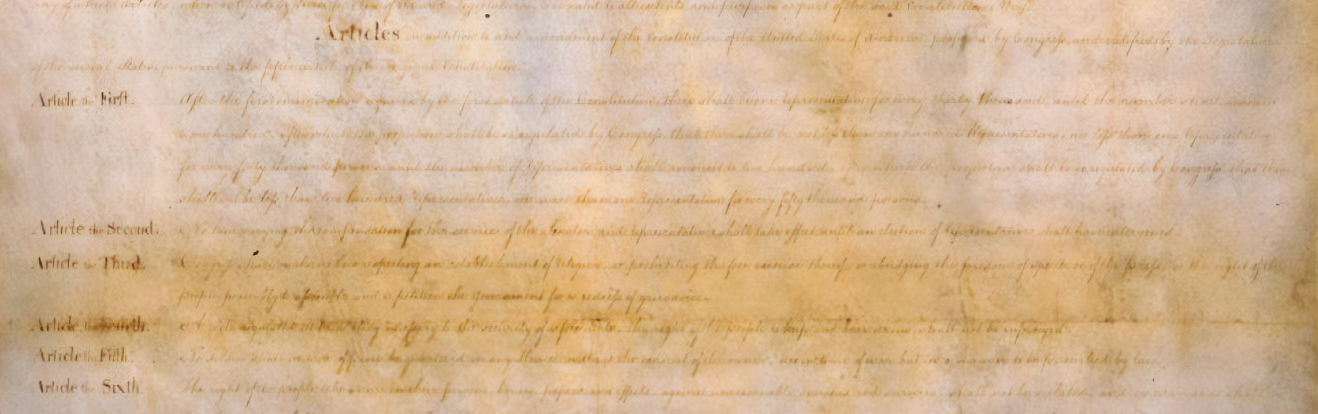 Articles in addition to and amendment of the Constitution of the United States of America, proposed by Congress and ratified by the Legislatures
of the several States, pursuant to the fifth article of the original Constitution.
Article the First. After the first enumeration required by the first article of the Constitution, there shall be one Representative for every thirty thousand, until the number shall amount
to one hundred, after which the proportion shall be so regulated by Congress, that there shall be not less than one hundred Representatives, nor less than one Representative
for every forty thousand persons, until the number of Representatives shall amount to two hundred, after which the proportion shall be so regulated by Congress, that there
shall not be less than two hundred Representatives, nor more than one Representative for every fifty thousand persons.
Article the Second. No law varying the compensation for the services of the Senators and Representatives shall take effect, until an election of Representatives shall have intervened.
Article the Third. Congress shall make no law respecting an establishment of religion, or prohibiting the free exercise thereof; or abridging the freedom of speech, or of the press, or the right of the
people peaceably to assemble, and to petition the government for a redress of grievances.
Article the Fourth. A well regulated militia being necessary to the security of a free State, the right of the people to keep and bear arms shall not be infringed.
Article the Fifth. No Soldier shall in time of peace be quartered in any House, without the consent of the owner, nor in time of war, but in a manner to be prescribed by law.
Article the Sixth. The right of the people to be secure in their persons, houses, papers, and effects, against unreasonable searches and seizures, shall not be violated, and no warrants shall